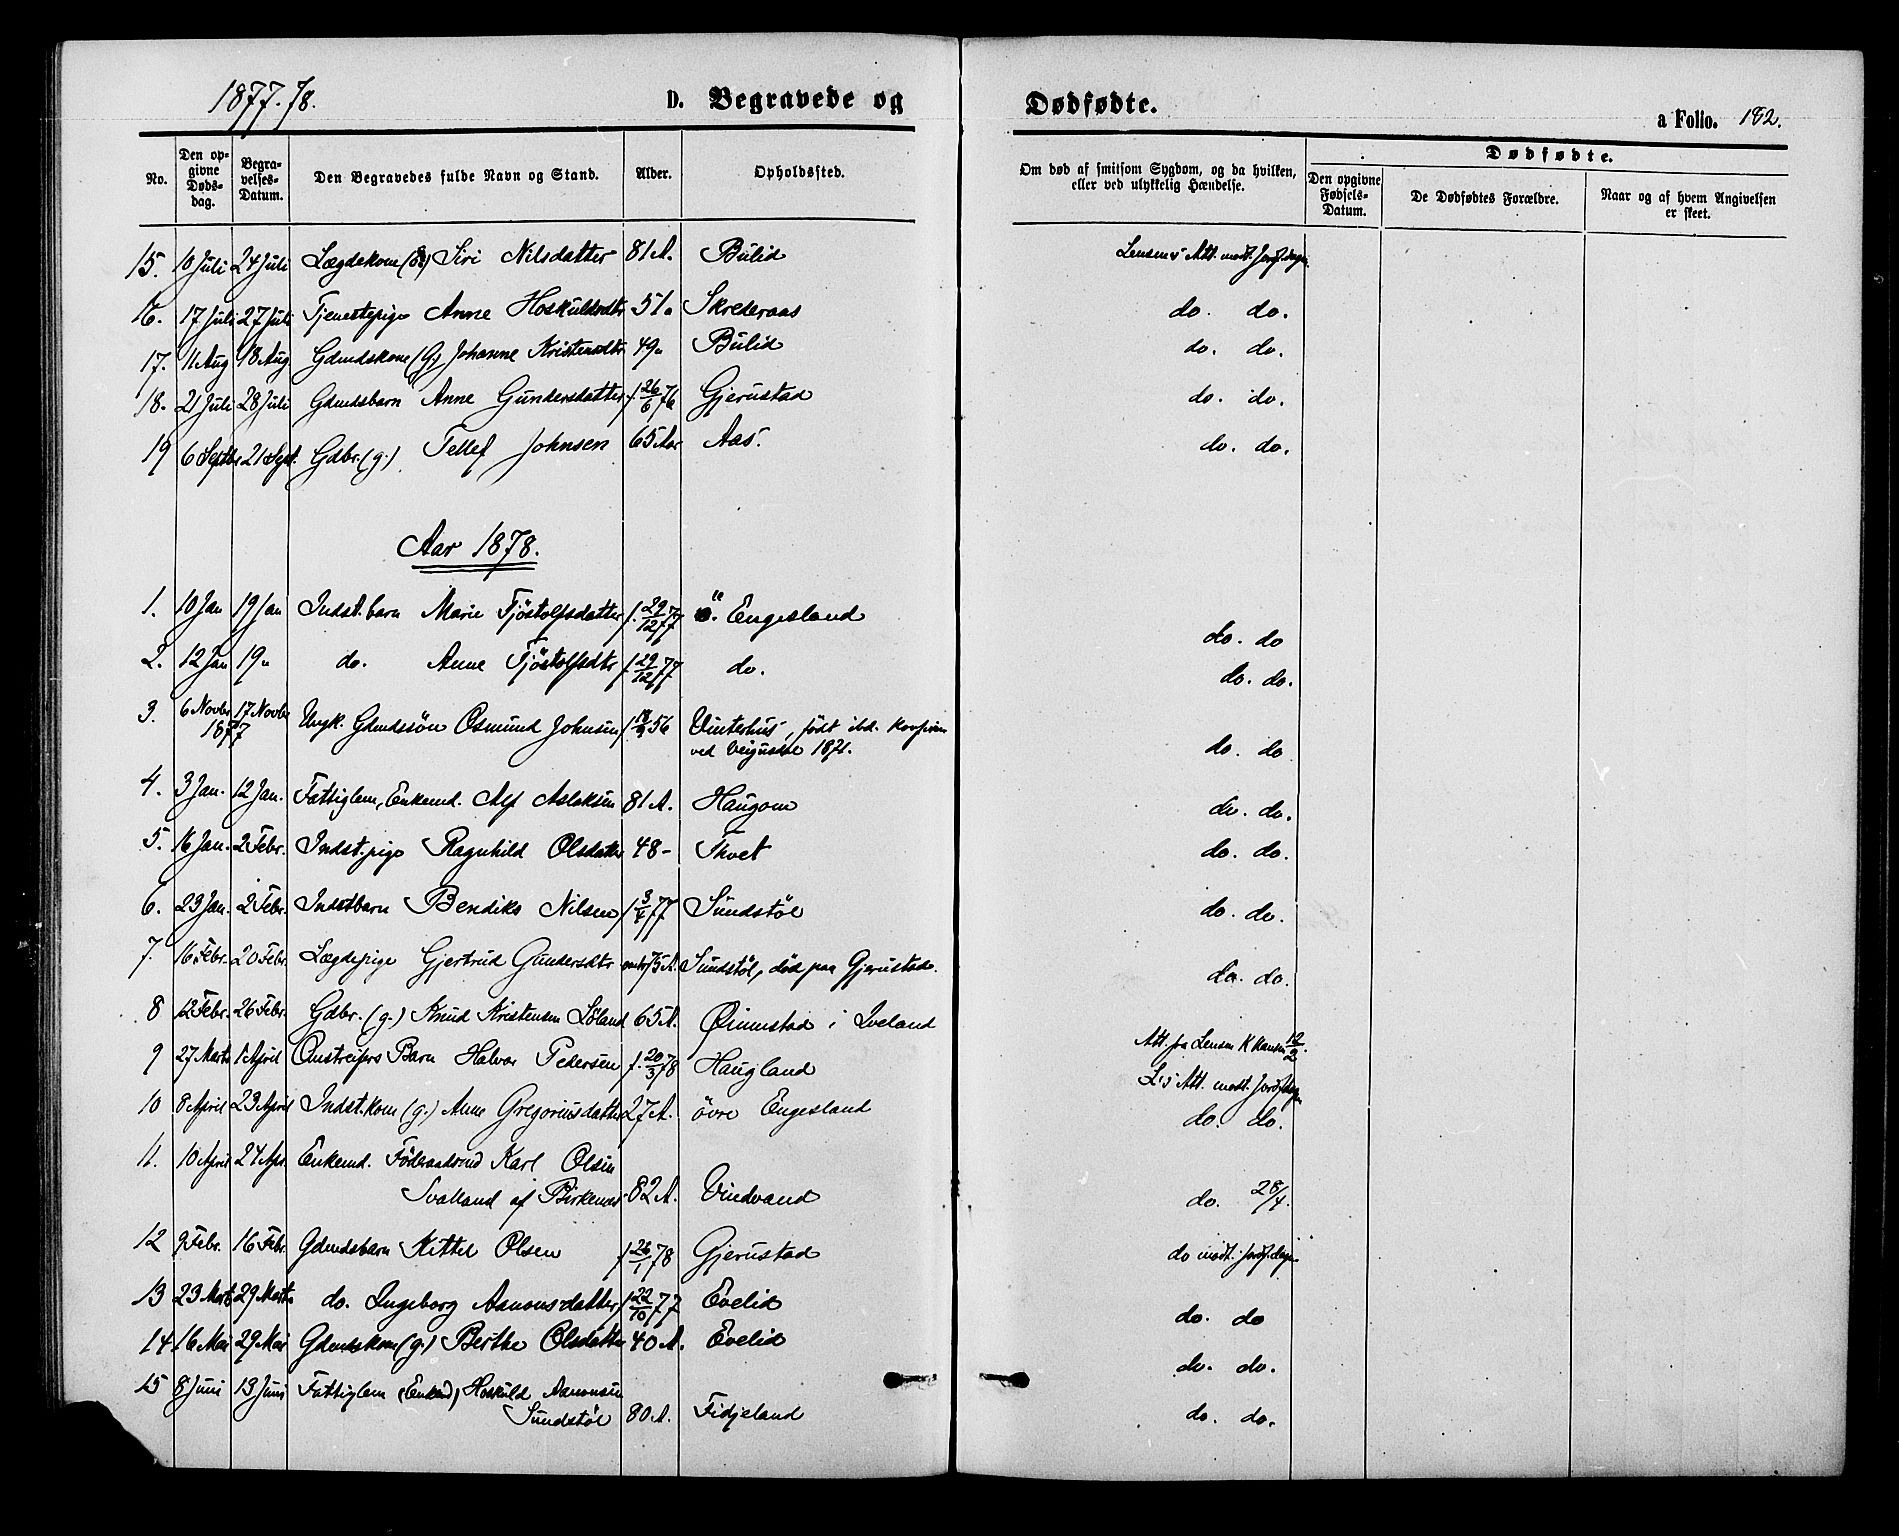 1877.78.
D. Begravede og Dødfødte.
a Folio. 182.
No.
Den opgivne Døds-dag.
Begravelses-Datum.
Den Begravedes fulde Navn og Stand.
Alder.
Opholdssted.
Om død af smitsom Sygdom, og da hvilken, eller ved ulykkelig Hændelse.
Dødfødte.
Den opgivne Fødsels-Datum.
De Dødfødtes Forældre.
Naar og af hvem Angivelsen er skeet.
15. 10 Juli 24 Juli Lægdekom Siri Nilsdatter 81 A. Bülid Lensm's Att. modt. Jordf.dagen
16. 17 Juli 27 Juli Tjenestepige Anne Hoskuldsdtr 51 " Skrederaas do. do.
17. 11 Aug 18 Aug Gdmdskone (g.) Johanne Kristensdtr 49 " Bülid do. do.
18. 21 Juli 28 Juli Gdmdsbarn Anne Gundersdatter f. 26/6 76 Gjerustad do. do.
19 6 Septbr 21 Sept. Gdbr. (g.) Tellef Johnsen 65 Aar Aas. do. do.
Aar 1878.
1. 10 Jan 19 Jan Indst.barn Marie Tjöstolfsdatter f. 29/12 77 ö. Engesland do. do
2. 12 Jan 19 " do. Anne Tjöstolfsdtr f. 29/12 77 do. do. do.
3. 6 Novbr 17 Novbr Ungk. Gdmdssön Osmund Johnsen f 56 Vinterhus, födt ibd.
1877 ved 1871. do. do
4. 3 Jan. 12 Jan. Fattiglem, Enkemd. Alf Aslaksen 81 A. Haugom do. do.
5. 16 Jan. 2 Febr. Indst.pige Ragnhild Olsdatter 48 - Thvet do. do.
6. 23 Jan. 2 Febr. Indstbarn Bendiks Nilsen f 77 Sundstöl do. do.
7. 16 Febr. 20 Febr. Lægdepige Gjertrud Gundersdtr 75 A. Sundstöl, död paa Gjerustad. do. do.
8 12 Febr. 26 Febr. Gdbr. (g.) Knud Kristensen Löland 65 A. i Iveland Att. fra Lensm K Hansen
9 27 Marts 1 April Barn Halvor Pedersen f. 20/3 78 Haugland L's Att. modt. Jordf.dagen
10 8 April 23 April Indst.kom (g.) Anne Gregoriusdatter 27 A. övre Engesland do. do.
11. 10 April 24 Apr. Enkemd. Föderaadsmd Karl Olsen
Svalland af Birkenes 82 A. Vindvand do. 28/4.
12 9 Febr. 16 Febr. Gdmdsbarn Kittel Olsen f 26/1 78 Gjerustad do modt. Jordf.dagen
13 23 Marts 29 Marts do. Ingeborg Aanonsdatter f 22/10 77 Evelid do. do
14 16 Mai 29 Mai Gdmdskom (g.) Berthe Olsdatter 40 A. Evelid do. do.
15 8 Juni 13 Juni Fattiglem (Enkemd) Hoskuld Aanonsen
Sundstöl 80 A. Fidjeland do. do.